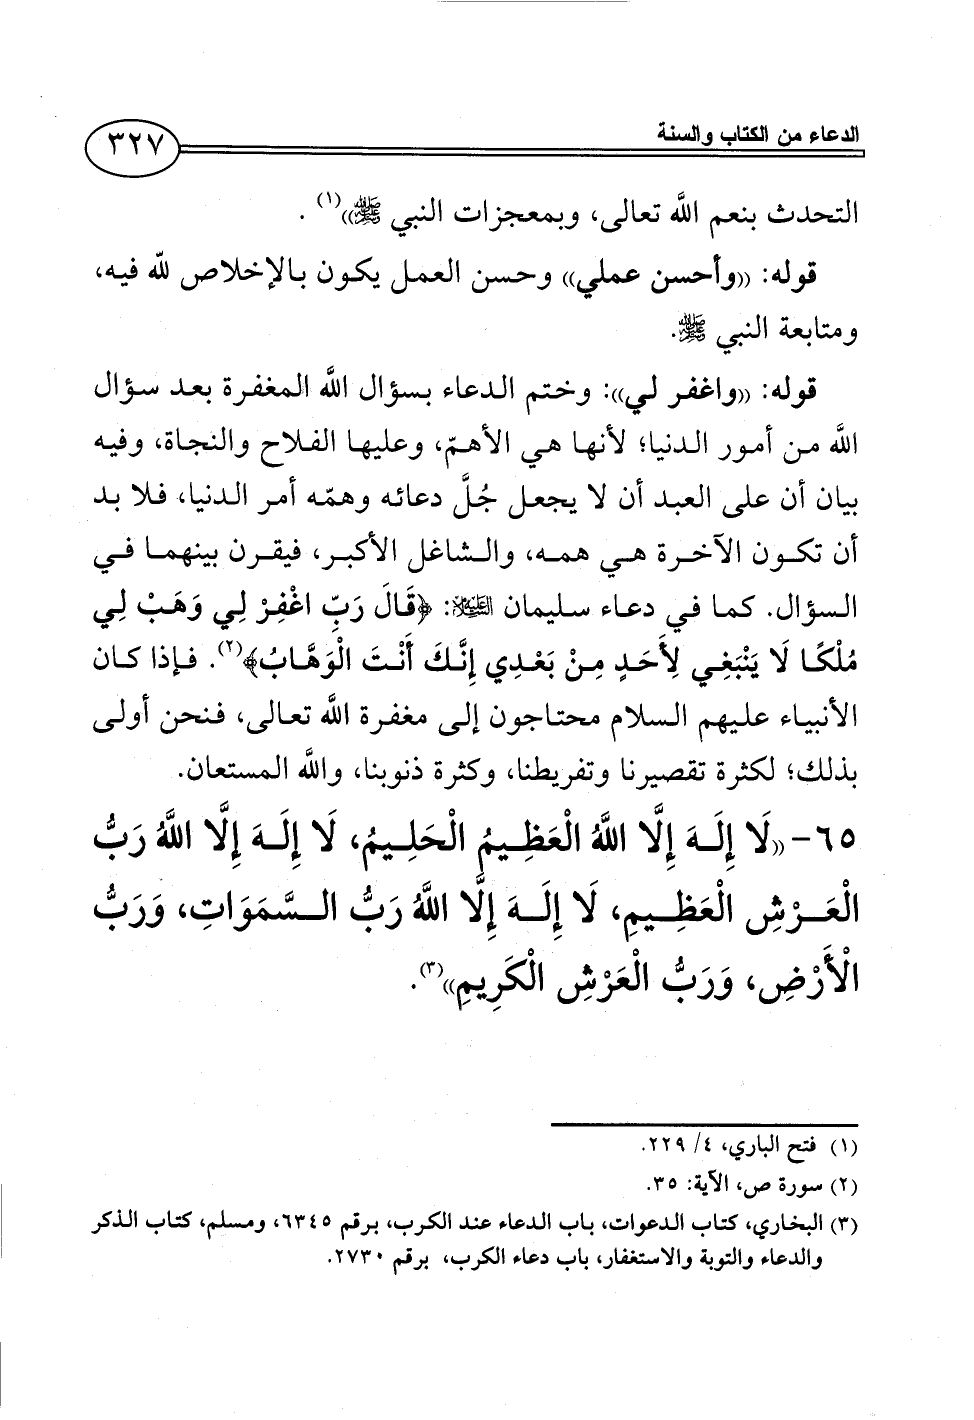 الدعاء من الكتاب والسنة
٣٢٧
التحدث بنعم الله تعالى، وبمعجزات النبي ﷺ))(١) .
قوله: ((وأحسن عملي)) وحسن العمل يكون بالإخلاص لله فيه،
ومتابعة النبي ﷺ.
قوله: ((واغفر لي)): وختم الدعاء بسؤال الله المغفرة بعد سؤال
الله من أمور الدنيا؛ لأنها هي الأهمّ، وعليها الفلاح والنجاة، وفيه
بيان أن على العبد أن لا يجعل جُلَّ دعائه وهمّه أمر الدنيا، فلا بد
أن تكون الآخرة هي همه، والشاغل الأكبر، فيقرن بينهما في
السؤال. كما في دعاء سليمان عليه السلام: ﴿قَالَ رَبِّ اغْفِرْ لِي وَهَبْ لِي
مُلْكًا لَا يَنْبَغِي لِأَحَدٍ مِنْ بَعْدِي إِنَّكَ أَنْتَ الْوَهَّابُ﴾(٢). فإذا كان
الأنبياء عليهم السلام محتاجون إلى مغفرة الله تعالى، فنحن أولى
بذلك؛ لكثرة تقصيرنا وتفريطنا، وكثرة ذنوبنا، والله المستعان.
٦٥- ((لَا إِلَهَ إِلَّا اللهُ الْعَظِيمُ الْحَلِيمُ، لَا إِلَهَ إِلَّا اللهُ رَبُّ
الْعَرْشِ الْعَظِيمِ، لَا إِلَهَ إِلَّا اللهُ رَبُّ السَّمَوَاتِ، وَرَبُّ
الْأَرْضِ، وَرَبُّ الْعَرْشِ الْكَرِيمِ))(٣).
(١) فتح الباري، ٤/ ٢٢٩.
(٢) سورة ص، الآية: ٣٥.
(٣) البخاري، كتاب الدعوات، باب الدعاء عند الكرب، برقم ٦٣٤٥، ومسلم، كتاب الذكر
والدعاء والتوبة والاستغفار، باب دعاء الكرب، برقم ٢٧٣٠.